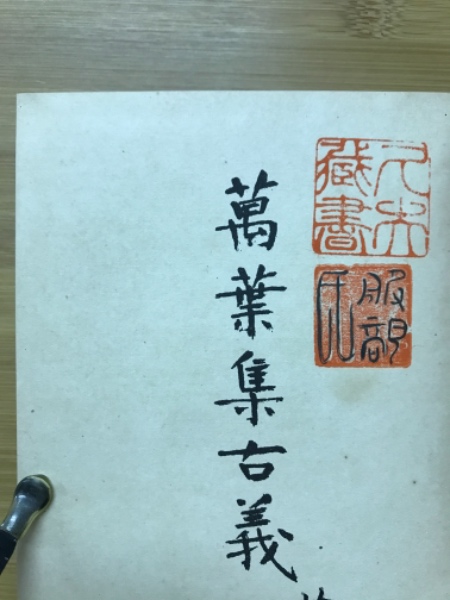 藏書
服部
氏
萬葉集古義